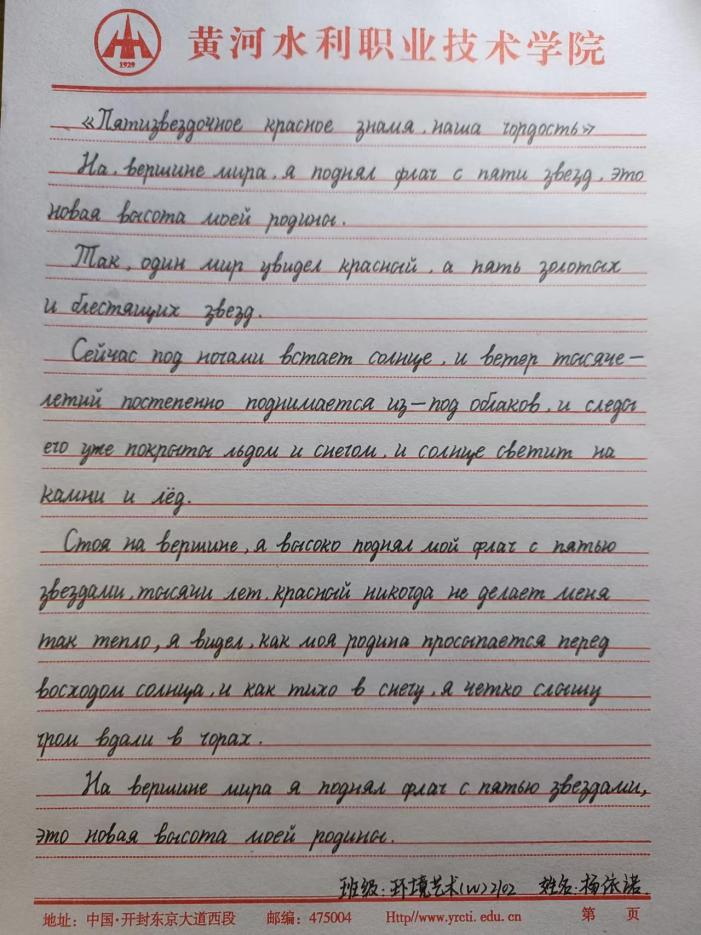 1929
黄河水利职业技术学院
«Пятизвездочное красное знамя, наша гордость»
На, вершине мира, я поднял флаг с пяти звезд, это
новая высота моей родины.
Так, один мир увидел красный, а пять золотых
и блестящих звезд.
Сейчас под ногами встает солнце, и ветер тысяче-
летий постепенно поднимается из-под облаков, и следы
его уже покрыты льдом и снегом, и солнце светит на
камни и лёд.
Стоя на вершине, я высоко поднял мой флаг с пятью
звездами, тысячи лет, красный никогда не делает меня
так тепло, я видел, как моя родина просыпается перед
восходом солнца, и как тихо в снегу, я четко слышу
гром вдали в горах.
На вершине мира я поднял флаг с пятью звездами,
это новая высота моей родины.
班级:环境艺术(W)2102 姓名:杨依诺
地址:中国·开封东京大道西段 邮编:475004 Http//www.yrcti.edu.cn 第 页